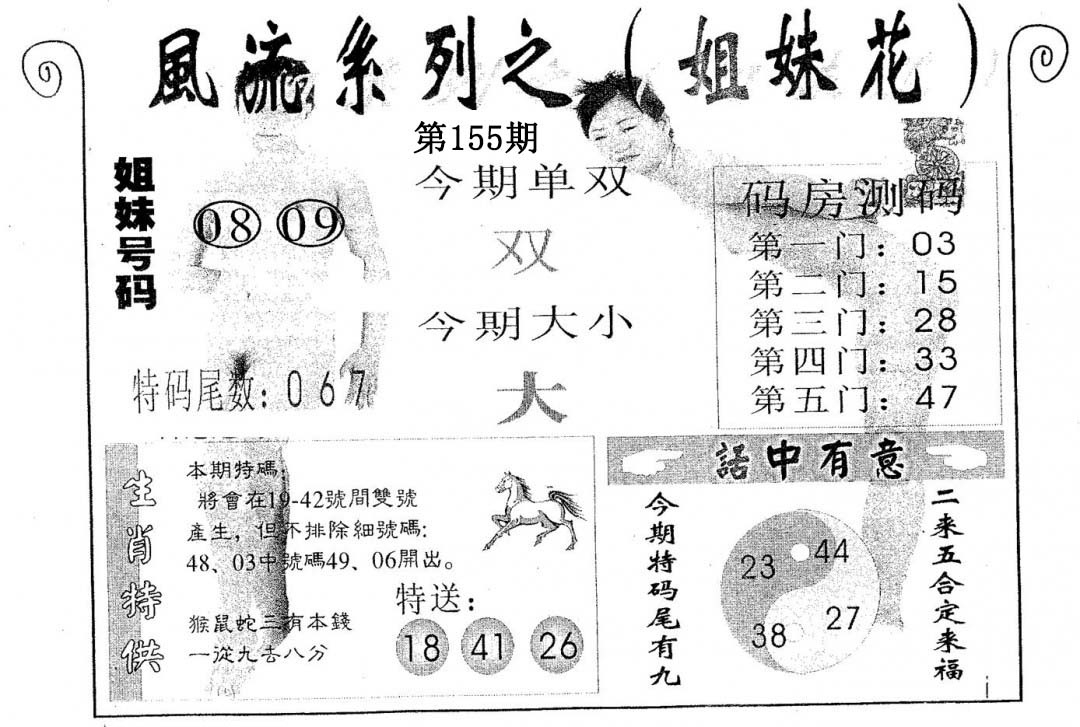 風流系列之（姐妹花）
第155期
姐妹号码
08 09
特码尾数：067
今期单双
双
今期大小
大
码房测码
第一门：03
第二门：15
第三门：28
第四门：33
第五门：47
生肖特供
本期特碼：
將會在19-42號間雙號
產生，但不排除細號碼：
48、03中號碼49、06開出。
猴鼠蛇三有本錢
一從九去八分
特送：
18 41 26
話中有意
今期特码尾有九
23 44
38 27
二来五合定来福